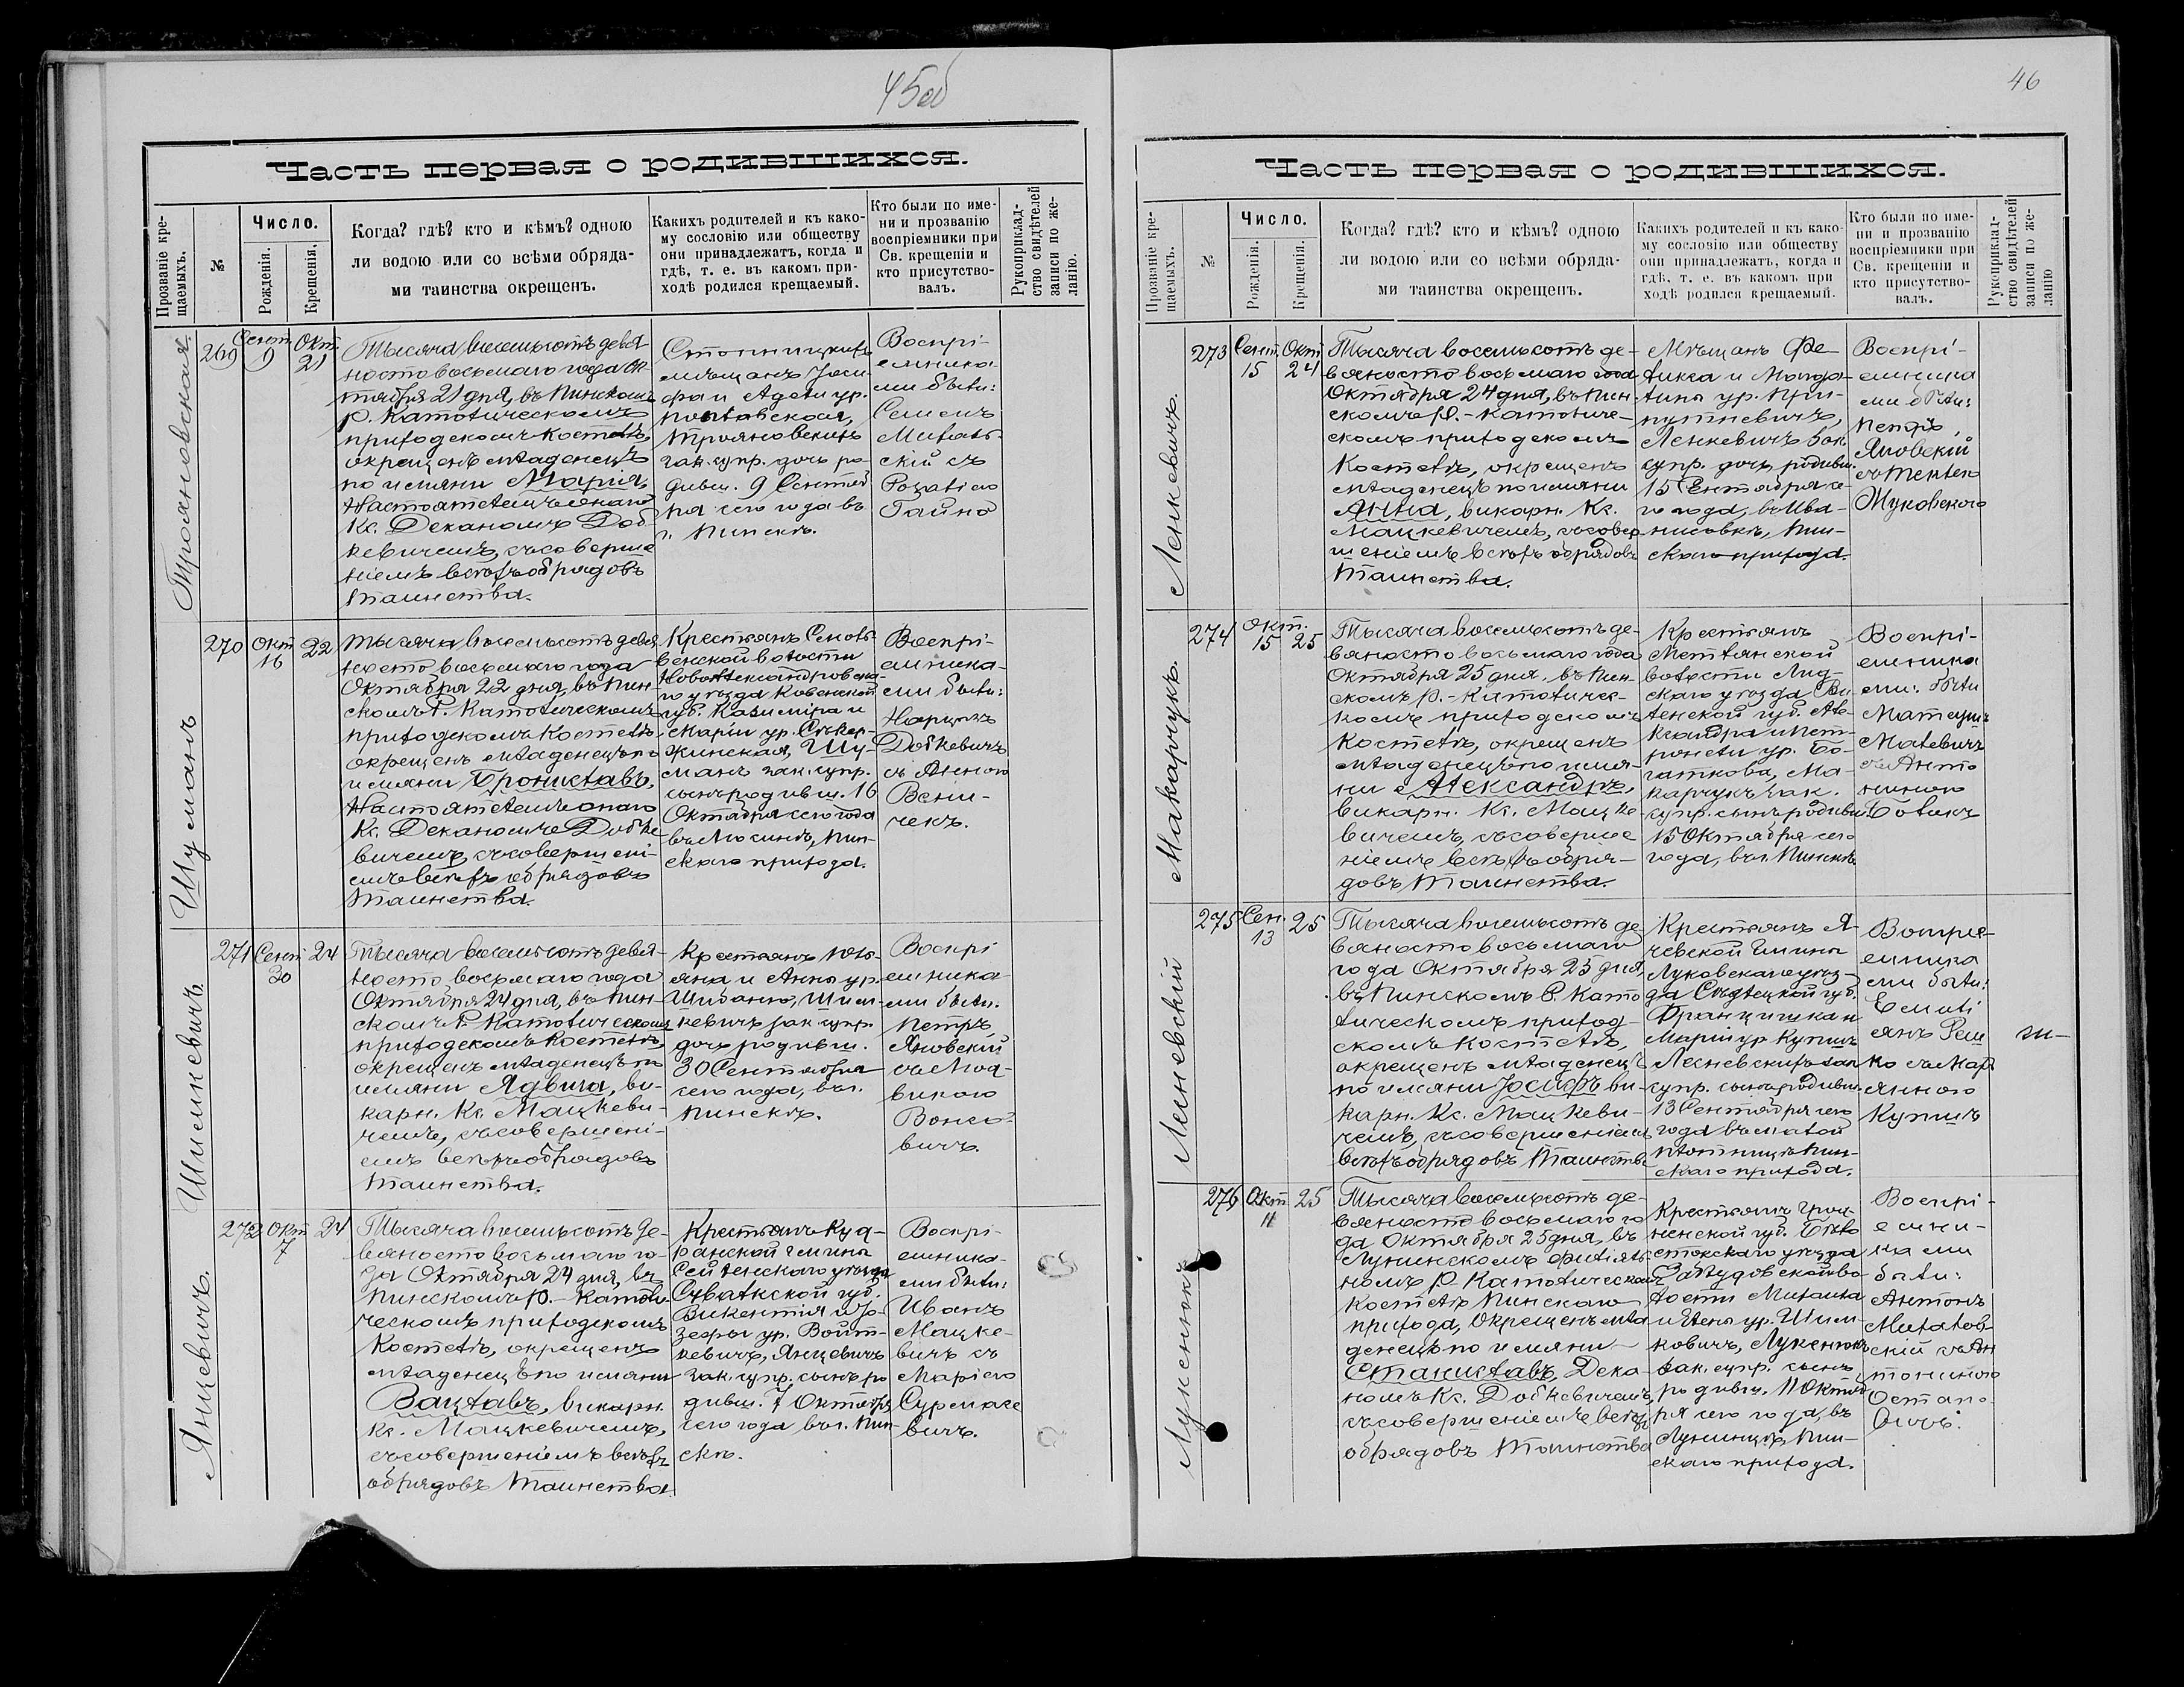 45об
Часть первая о родившихся.
Прозваніе кре-
щаемыхъ.
№
Число.
Рожденія.
Крещенія.
Когда? гдѣ? кто и кѣмъ? одною
ли водою или со всѣми обряда-
ми таинства окрещенъ.
Какихъ родителей и къ како-
му сословію или обществу
они принадлежатъ, когда и
гдѣ, т. е. въ какомъ при-
ходѣ родился крещаемый.
Кто были по име-
ни и прозванію
воспріемники при
Св. крещеніи и
кто присутство-
валъ.
Рукоприклад-
ство свидѣтелей
записи по же-
ланію.
Трояновская.
269
Сент.
9
Окт.
21
Тысяча восемьсотъ девя
носто восьмаго года Ок
тября 21 дня, въ Пинскомъ
Р. Католическомъ
приходскомъ Костелѣ,
окрещенъ младенецъ
по имяни Марія,
Настоятелемъ онаго
Кс. Деканомъ Дob
кевичемъ, съ соверше
ніемъ всѣхъ обрядовъ
таинства.
мѣщанъ Іоси
фа и Адели ур.
Трояновскихъ
зак. супр. дочь ро
дивш. 9 Сентяб
ря сего года въ
г. Пинскѣ.
Воспрі-
емника-
ми были:
Семенъ
Михаль-
скій съ
Розаліею
Гайно
Шуманъ
270
Окт
16
22
Тысяча восемьсотъ девя
носто восьмаго года
Октября 22 дня, въ Пин-
скомъ Р. Католическомъ
приходскомъ Костелѣ
окрещенъ младенецъ по
имяни Брониславъ,
Настоятелемъ онаго
Кс. Деканомъ Добке
вичемъ, съ совершені-
емъ всѣхъ обрядовъ
Таинства.
Крестьянъ
венской волости
Новоалександровска-
го уѣзда Ковенской
губ. Казиміра и
Маріи ур. Сикер-
жинская, Шу-
манъ зак. супр.
сынъ родивш. 16
Октября сего года
въ Люсинѣ, Пин-
скаго прихода.
Воспрі-
емника-
ми были:
Нарцизъ
Добкевичъ
съ Анною
Вени-
чекъ.
Шимкевичъ.
271
Сент
30
24
Тысяча восемьсотъ девя-
носто восьмаго года
Октября 24 дня, въ Пин-
скомъ Р. Католическомъ
приходскомъ Костелѣ,
окрещенъ младенецъ по
имяни Ядвига, ви-
карн. Кс. Мацкеви-
чемъ, съ совершені-
емъ всѣхъ обрядовъ
Таинства.
Крестьянъ Юлі-
яна и Анны ур.
Шибанко, Шим-
кевичъ зак. супр.
дочь родивш.
30 Сентября
сего года, въ г.
Пинскѣ.
Воспрі
емника-
ми были:
Петръ
Яновскій
съ Люд-
викою
Вонсо-
вичъ.
Янцевичъ.
272
Окт
7
24
Тысяча восемьсотъ де-
вяносто восьмаго го-
да Октября 24 дня, въ
Пинскомъ Р.-Католи-
ческомъ приходскомъ
Костелѣ, окрещенъ
младенецъ по имяни
Вацлавъ, викарн.
Кс. Мацкевичемъ,
съ совершеніемъ всѣхъ
обрядовъ Таинства
Крестьянъ Куд-
ранской гмины
Сейненскаго уѣзда
Сувалкской губ.
Викентія и Іо-
зефы ур. Войт-
кевичъ, Янцевичъ
зак. супр. сынъ ро
дивш. 7 Октября
сего года въ г. Пин
скѣ.
Воспрі-
емника-
ми были:
Иванъ
Мацке-
вичъ съ
Маріею
Сурмаче
вичъ.
46
Часть первая о родившихся.
Прозваніе кре-
щаемыхъ.
№
Число.
Рожденія.
Крещенія.
Когда? гдѣ? кто и кѣмъ? одною
ли водою или со всѣми обряда-
ми таинства окрещенъ.
Какихъ родителей и къ како-
му сословію или обществу
они принадлежатъ, когда и
гдѣ, т. е. въ какомъ при
ходѣ родился крещаемый.
Кто были по име-
ни и прозванію
воспріемники при
Св. крещеніи и
кто присутство-
валъ.
Рукоприклад-
ство свидѣтелей
записи по же-
ланію
Ленкевичъ.
273
Сент.
15
Окт
24
Тысяча восемьсотъ де-
вяносто восьмаго года
Октября 24 дня, въ Пин
скомъ Р.-Католиче-
скомъ приходскомъ
Костелѣ, окрещенъ
младенецъ по имяни
Анна, викарн. Кс.
Мацкевичемъ, съ совер
шеніемъ всѣхъ обрядовъ
Таинства.
Мѣщанъ Фе-
ликса и Магда-
лины ур. При-
путневичъ,
Ленкевичъ зак.
супр. дочь родивш.
15 Сентября се-
го года, въ Ива-
нисовкѣ, Пин-
скаго прихода.
Воспрі-
емника
ми были:
Петръ
Яновскій
съ Теклею
Жуковскою
Макарчукъ.
274
Окт.
15
25
Тысяча восемьсотъ де-
вяносто восьмаго года
Октября 25 дня, въ Пин-
скомъ Р.-Католичес-
комъ приходскомъ
Костелѣ, окрещенъ
младенецъ по имя-
ни Александръ,
викарн. Кс. Мацке
вичемъ, съ соверше
ніемъ всѣхъ обря-
довъ Таинства.
Крестьянъ
Метлянской
волости Лид-
скаго уѣзда Ви-
ленской губ. Але-
ксандра и Пет-
ронели ур. Бо-
гаткова, Ма-
карчукъ зак.
супр. сынъ родивш.
15 Октября сего
года, въ г. Пинскѣ
Воспрі-
емника
ми: были
Матеушъ
Малевичъ
съ Анто
ниною
Ботикъ
Лисневскій
275
Сен.
13
25
Тысяча восемьсотъ де-
вяносто восьмаго
года Октября 25 дня,
въ Пинскомъ Р. Като
лическомъ приход-
скомъ Костелѣ,
окрещенъ младенецъ
по имяни Іосифъ ви-
карн. Кс. Мацкеви-
чемъ, съ совершеніемъ
всѣхъ обрядовъ Таинства
Крестьянъ
чевской гмины
Луковскаго уѣз-
да Сѣдлецкой губ.
Францишка и
Маріи ур. Купишъ
Лесневскихъ зак
супр. сынъ родивш.
13 Сентября сего
года въ малой
Плотницѣ Пин-
скаго прихода.
Воспрі-
емника
ми были:
Емилі
янъ Реш
ко съ Мар
янною
Купишъ
Лукенюкъ
276
Окт
11
25
Тысяча восемьсотъ де-
вяносто восьмаго го-
да Октября 25 дня, въ
Лунинскомъ филіаль-
номъ Р. Католическомъ
Костелѣ Пинскаго
прихода, окрещенъ мла
денецъ по имяни
Станиславъ, Дека
номъ Кс. Добкевичемъ,
съ совершеніемъ всѣхъ
обрядовъ Таинства
Крестьянъ Грод-
ненской губ. Бѣло
стокскаго уѣзда
Заблудовской во-
лости Михаила
и Елены ур. Шим-
ковичъ, Лукенюкъ
зак. супр. сынъ
родивш. 11 Октяб
ря сего года, въ
Лунинцѣ, Пин-
скаго прихода.
Воспрі-
емни-
ками
были:
Антонъ
Михалов-
скій съ Ан
тониною
Остапо-
вичъ.